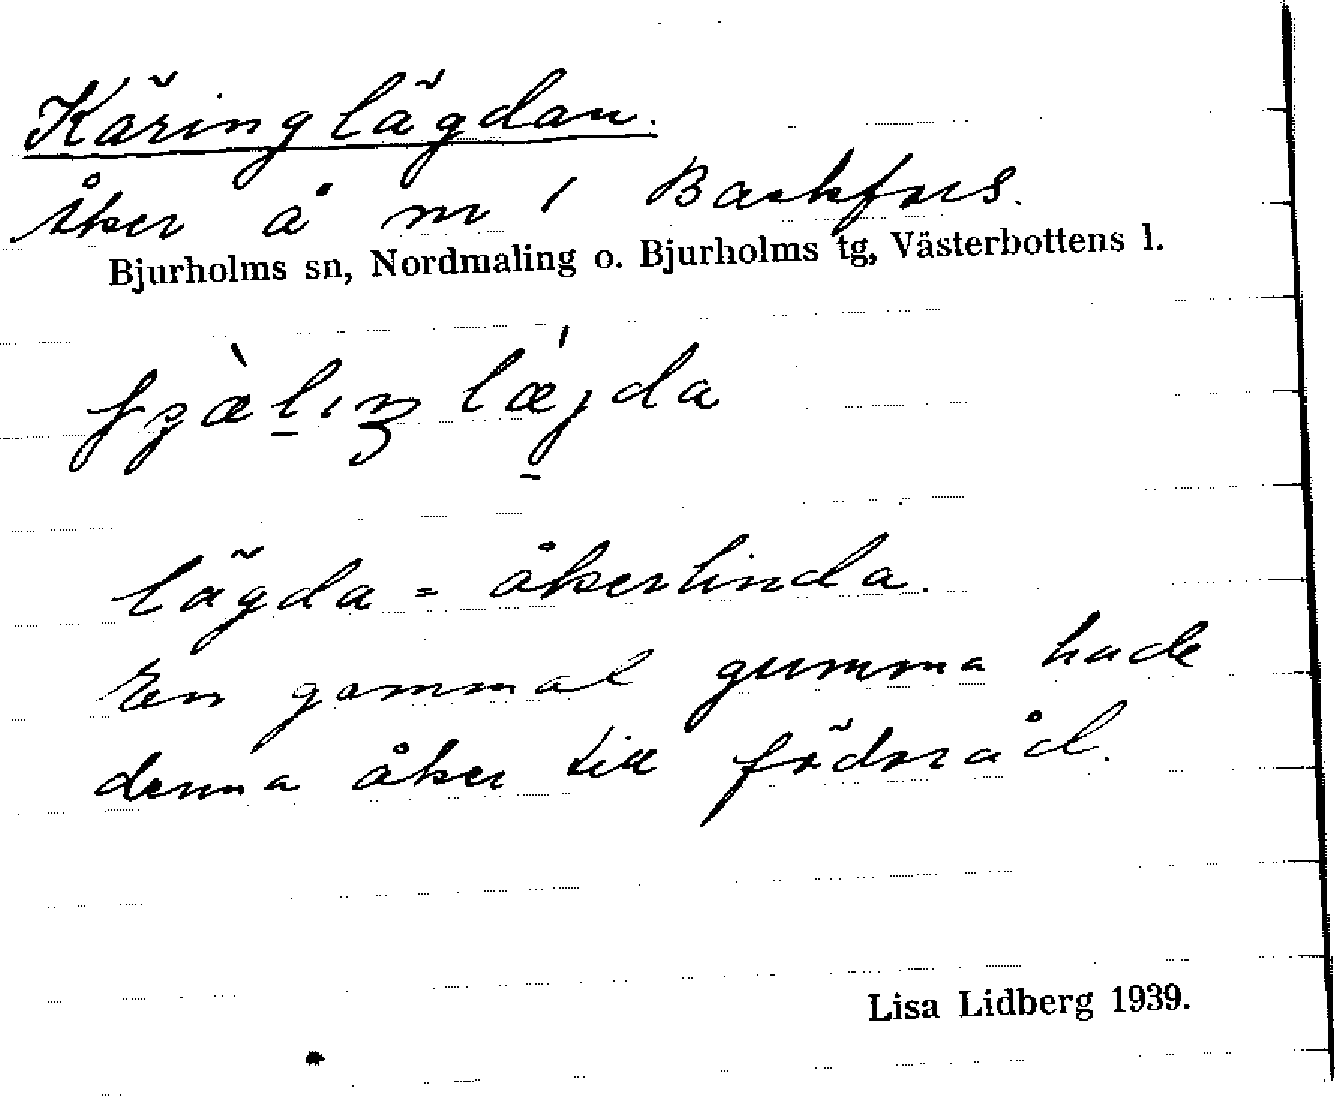 Käringlägdan.
Åker å nr 1 Backfors.
Bjurholms sn, Nordmaling o. Bjurholms tg, Västerbottens l.
lägda = åkerlinda.
En gammal gumma hade
denna åker till födoråd.
Lisa Lidberg 1939.